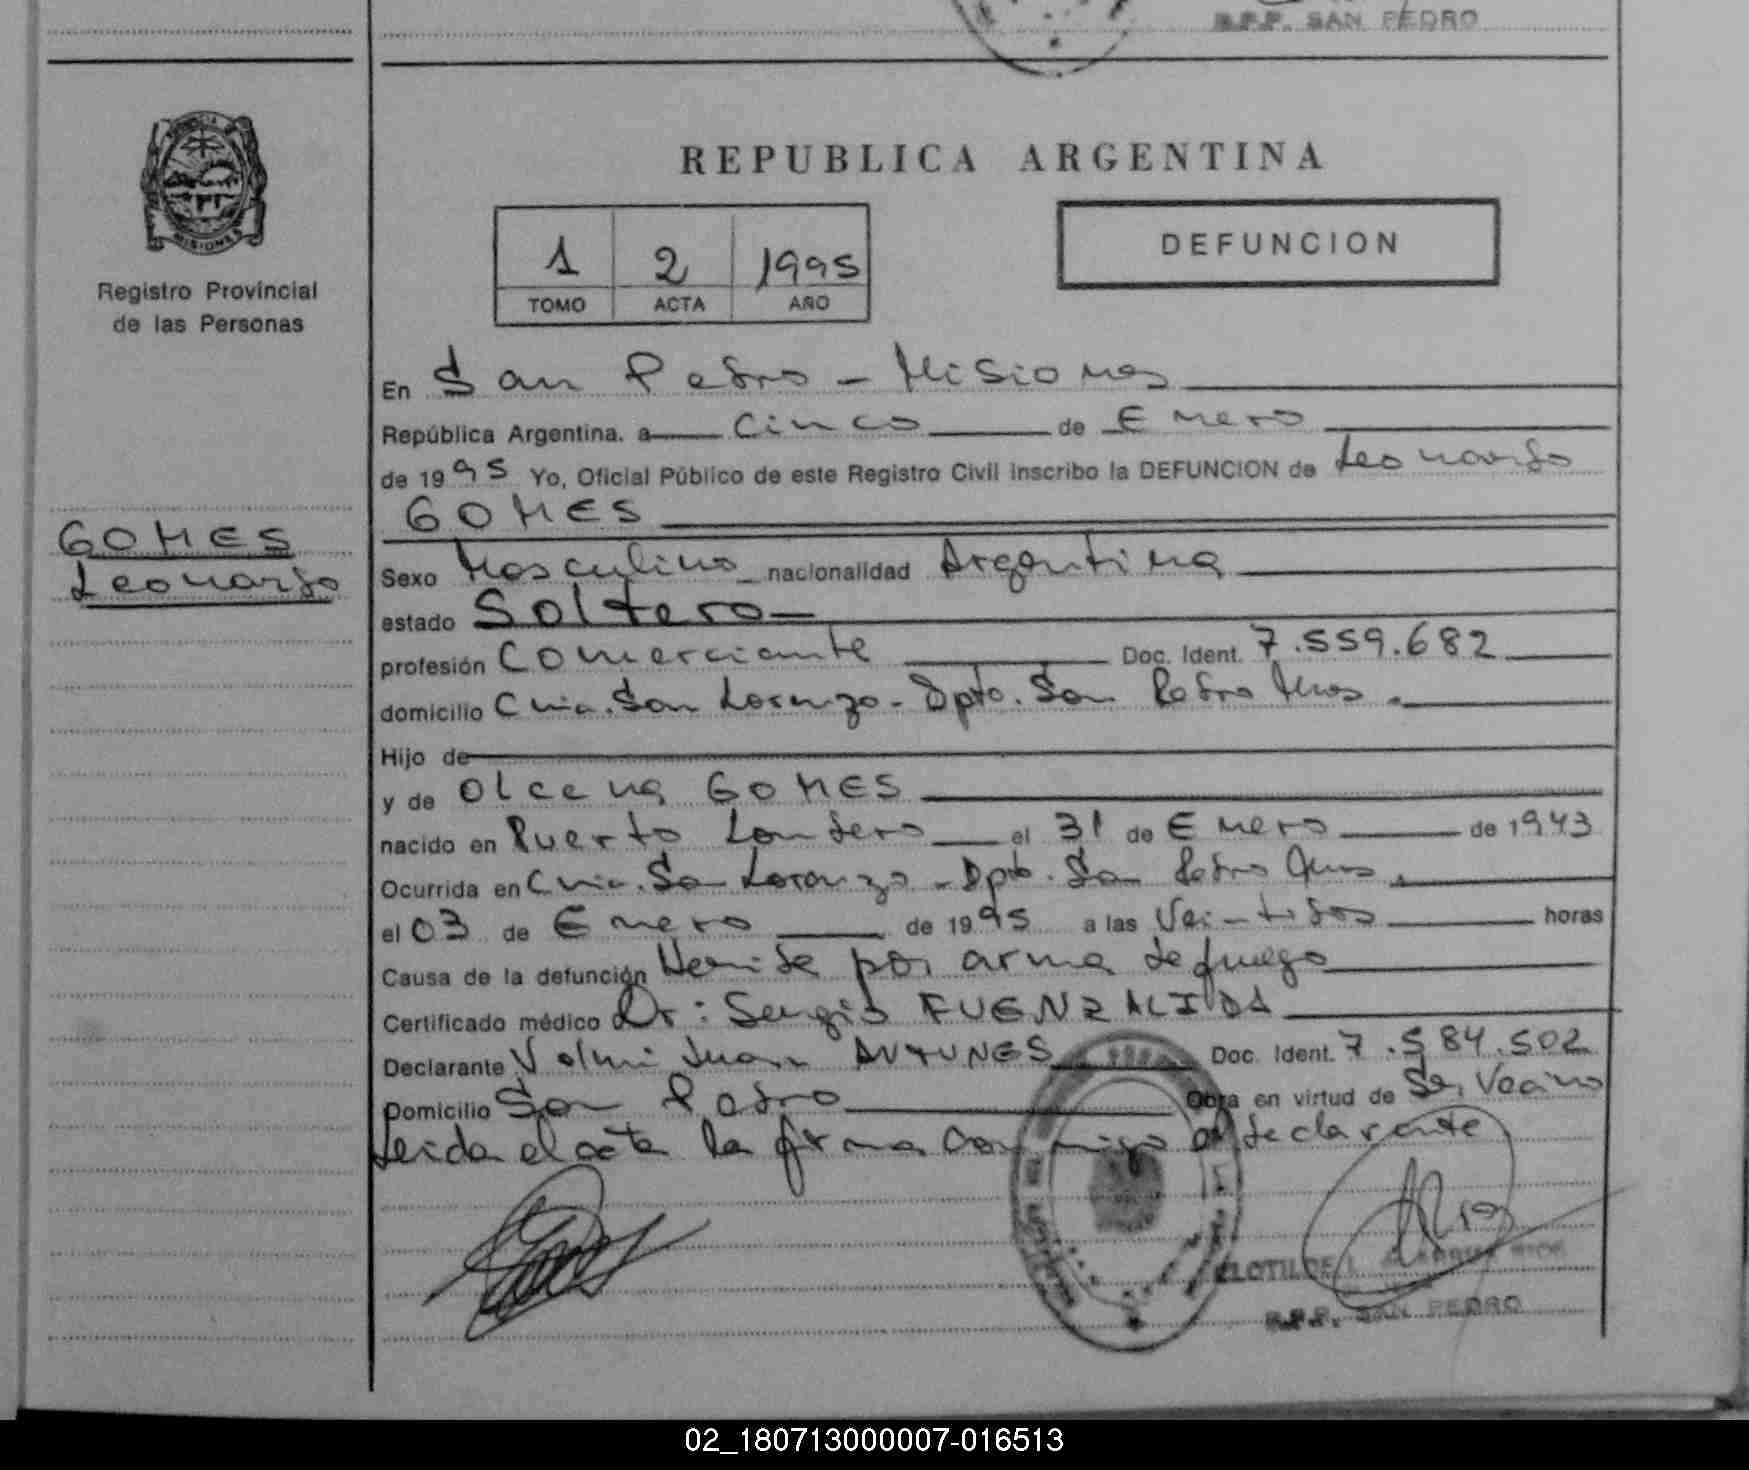 R.P.P. SAN PEDRO
PROVINCIA DE
MISIONES
Registro Provincial
de las Personas
REPUBLICA ARGENTINA
1 2 1995
TOMO ACTA AÑO
DEFUNCION
En San Pedro - Misiones
República Argentina, a cinco de Enero
de 1995 Yo, Oficial Público de este Registro Civil inscribo la DEFUNCION de Leonardo
GOMES
GOMES
Leonardo
Sexo Masculino nacionalidad Argentina
estado Soltero
profesión Comerciante Doc. Ident. 7.559.682
domicilio Cnia. San Lorenzo - Dpto. San Pedro Mnes.
Hijo de
y de Olcena GOMES
nacido en Puerto Londero el 31 de Enero de 1943
Ocurrida en Cnia. San Lorenzo - Dpto. San Pedro Mnes.
el 03 de Enero de 1995 a las Veintidos horas
Causa de la defunción Herida por arma de fuego
Certificado médico Dr: Sergio FUENZALIDA
Declarante Volmi Juan ANTUNES Doc. Ident. 7.584.502
Domicilio San Pedro Obra en virtud de Ser Vecino
Leida el acta la firma conmigo el declarante
CLOTILDE
R.P.P. SAN PEDRO
02_180713000007-016513